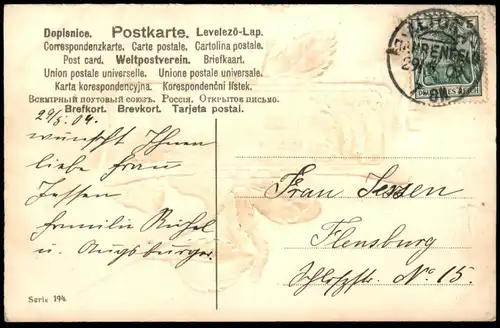 Dopisnice. Postkarte. Levelező-Lap.
Correspondenzkarte. Carte postale. Cartolina postale.
Post card. Weltpostverein. Briefkaart.
Union postale universelle. Unione postale universale.
Karta korespondencyjna. Korespondenční lístek.
Всемірный поутовый союзъ. Россія. Открытое письмо.
Brefkort. Brevkort. Tarjeta postal.
29/5. 04.
wünscht Ihnen
liebe Frau
Jessen
Familie
u. Augsburger.
Frau Jessen
Flensburg
Schloßstr. No 15.
BAHRENFELD
5
DEUTSCHES REICH
Serie 194.